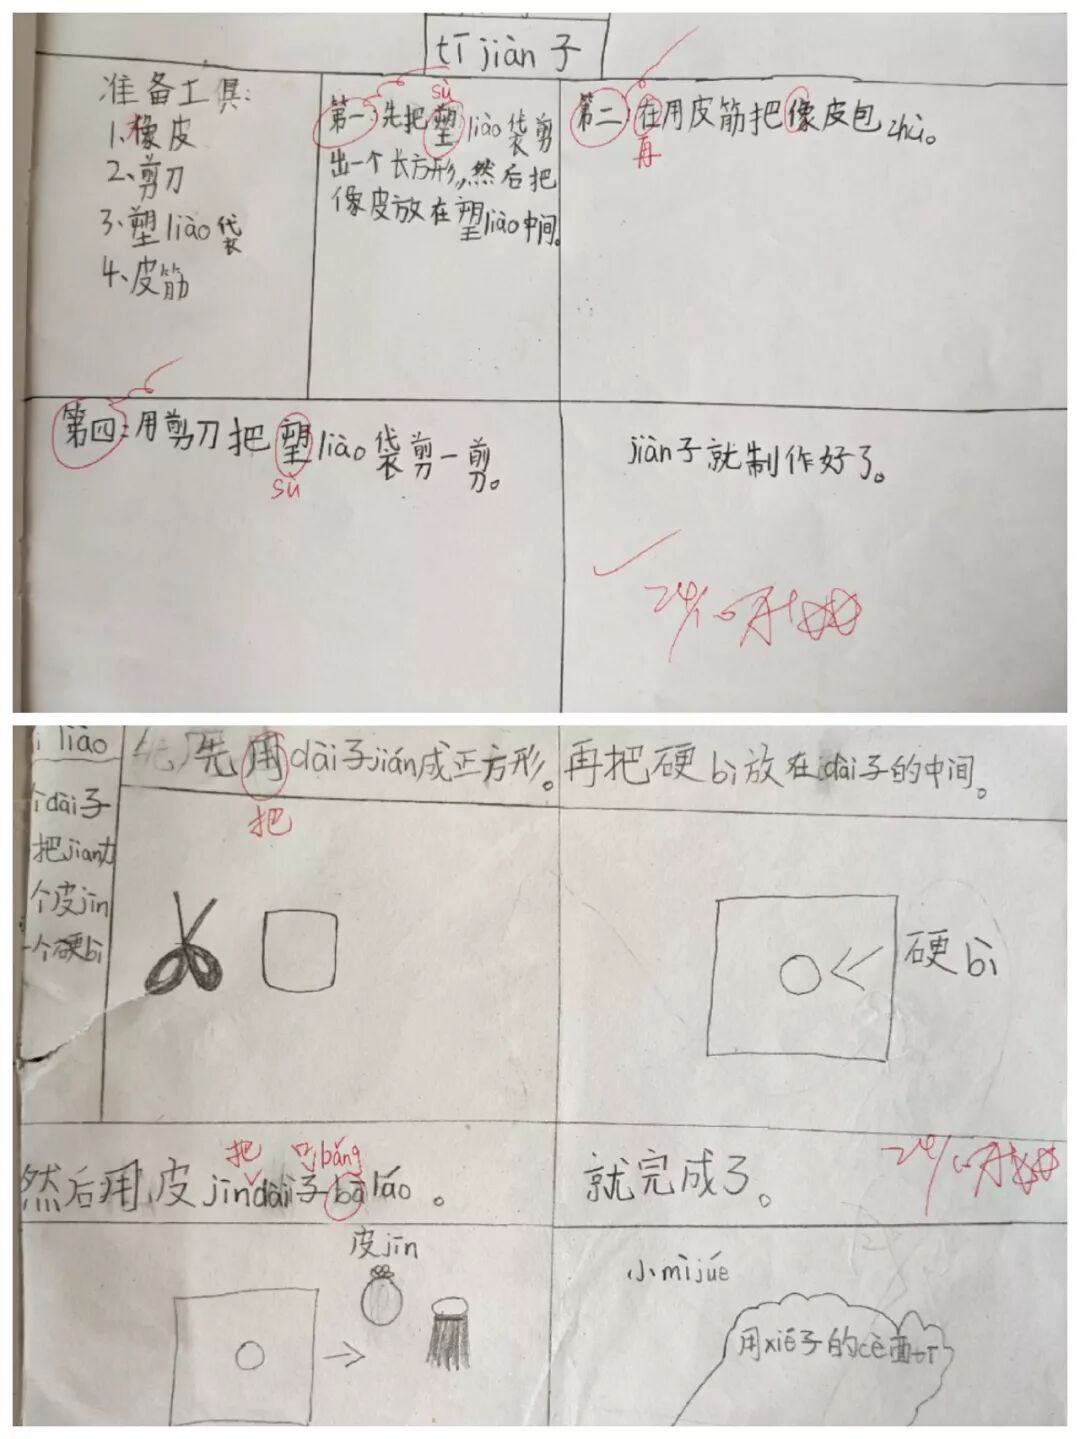 tī jiàn 子
准备工具:
1、橡皮
2、剪刀
3、塑 liào 袋
4、皮筋
sù
第一:先把塑 liào 袋剪
出一个长方形,然后把
像皮放在塑 liào 中间。
第二:在用皮筋把像皮包 zhù。
再
第四:用剪刀把塑 liào 袋剪一剪。
sù
jiàn子就制作好了。
liào
个dài子
把jian力
个皮jīn
一个硬bì
先用dài子jiǎn成正方形。
把
再把硬bì放在dài子的中间。
硬bì
把 口 bǎng
然后用皮jīndài子bāláo。
就完成了。
皮jīn
小mìjué
用xié子的cè面tī